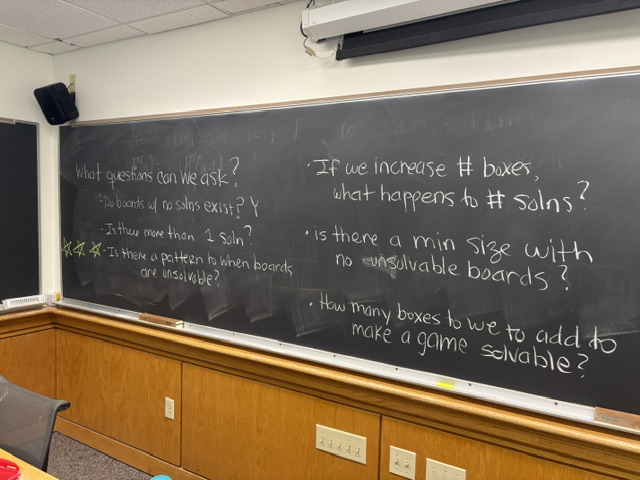 What questions can we ask?
- Do boards w/ no solns exist? Y
- Is there more than 1 soln?
- Is there a pattern to when boards
are unsolvable?
· If we increase # boxes,
what happens to # solns?
· is there a min size with
no unsolvable boards?
· How many boxes to we to add to
make a game solvable?